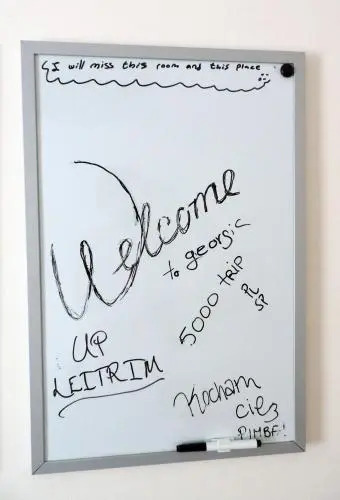 I will miss this room and this place
Welcome
to georgia
5000 TRIP
PL
SP
UP
LEITRIM
Kocham
Cię
PIMBF!